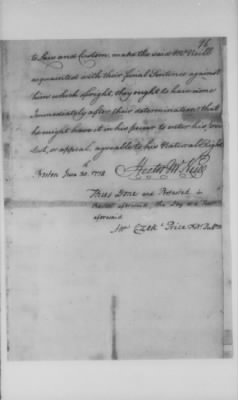 96
to Law and Custom, make the said McNeill
acquainted with their final Sentence against
him which of right they ought to have done
Immediately after their determination that
he might have it in his power to enter his
or appeal, agreeable to his Natural Right
Boston June 30. 1778
Hector McNeill
Thus Done and Protested in
Boston aforesaid, the Day and Year
aforesaid
Ezek Price